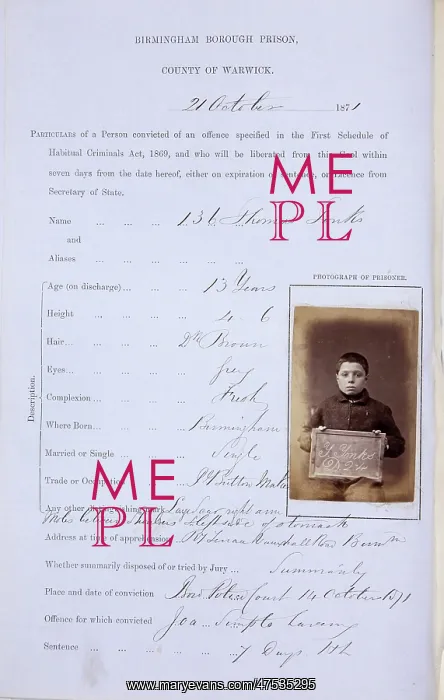 BIRMINGHAM BOROUGH PRISON,
COUNTY OF WARWICK.
21 October 1871
PARTICULARS of a Person convicted of an offence specified in the First Schedule of
Habitual Criminals Act, 1869, and who will be liberated from this Gaol within
seven days from the date hereof, either on expiration of sentence, or licence from
Secretary of State.
Name ... ... ... ... 136 Thomas Tonks
and
Aliases ... ... ... ... ...
PHOTOGRAPH OF PRISONER.
Description.
Age (on discharge) ... ... ... 13 Years
Height ... ... ... 4. 6
Hair ... ... ... ... Dk Brown
Eyes ... ... ... ... Grey
Complexion ... ... ... Fresh
Where Born ... ... ... Birmingham
Married or Single ... ... Single
Trade or Occupation ... Button Maker
Any other distinguishing mark Large Scar right arm
Moles between Shoulders & left side of stomach
Address at time of apprehension Vauxhall Road Birm
Whether summarily disposed of or tried by Jury ... Summarily
Place and date of conviction Boro Police Court 14 October 1871
Offence for which convicted Simple Larceny
Sentence ... ... ... ... 7 Days
T. Tonks
ME
PL
ME
PL
www.maryevans.com/47535295